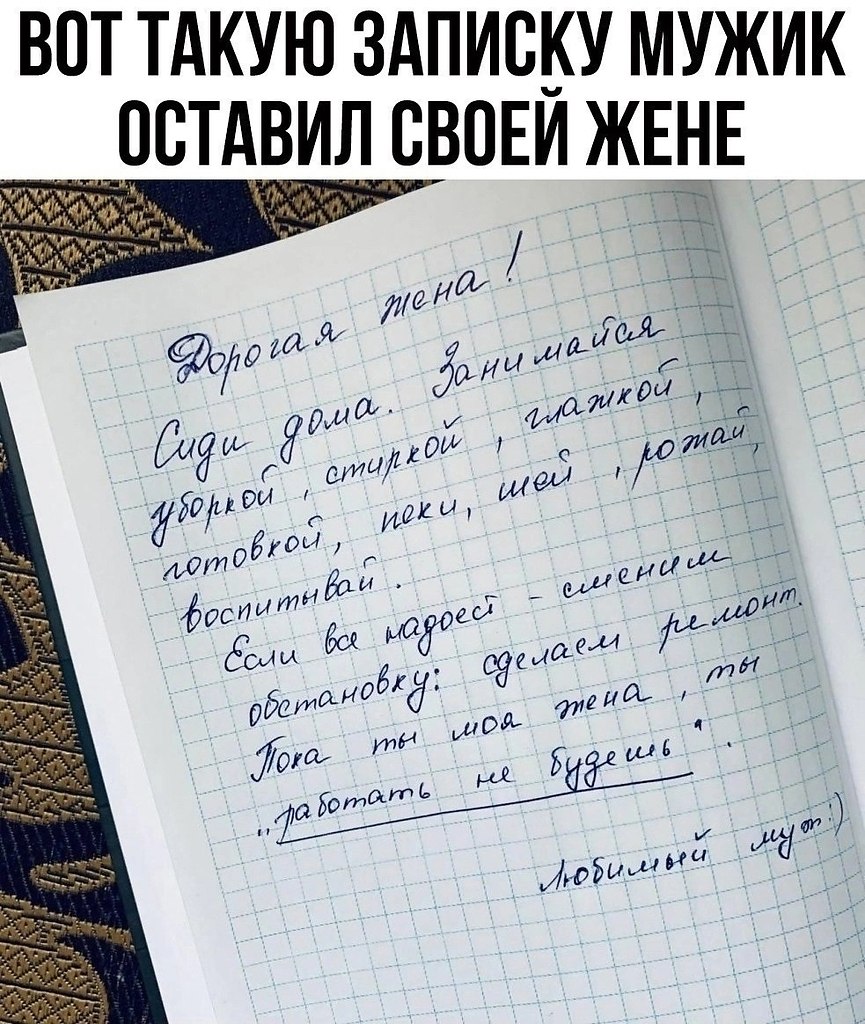 ВОТ ТАКУЮ ЗАПИСКУ МУЖИК
ОСТАВИЛ СВОЕЙ ЖЕНЕ
Дорогая жена!
Сиди дома. Занимайся
уборкой, стиркой, глажкой,
готовкой, пеки, шей, рожай,
воспитывай.
Если все надоест - сменим
обстановку: сделаем ремонт.
Пока ты моя жена, ты
„работать не будешь".
Любимый муж:)